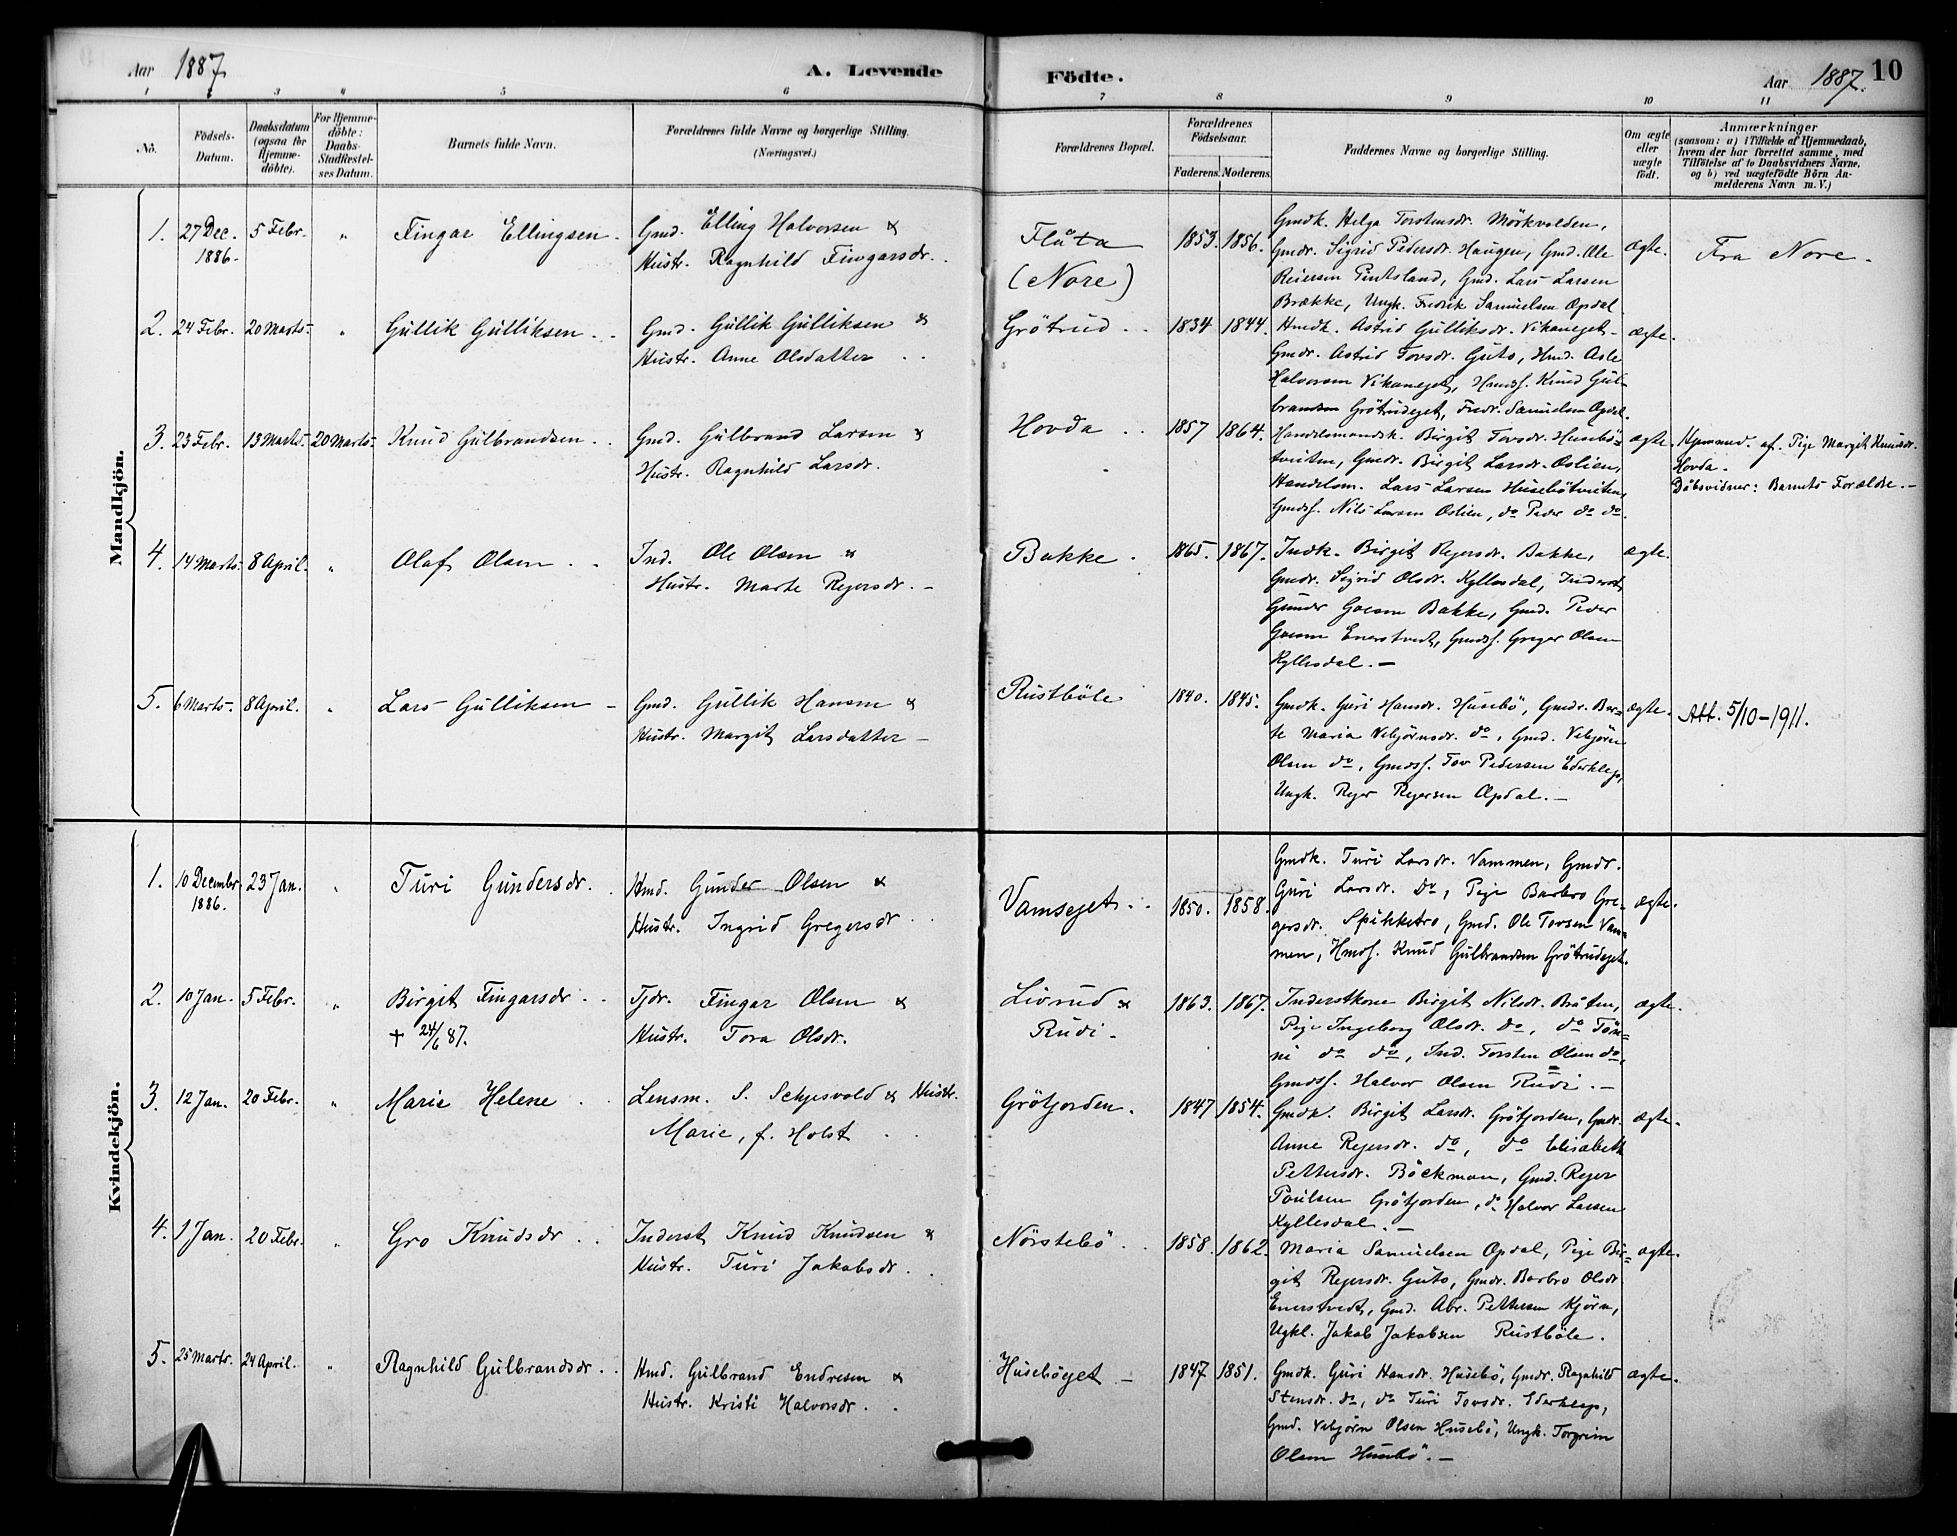 Aar 1887. A. Levende Födte. Aar 1887. 10
1 2 3 4 5 6 7 8 9 10 11
Nö.
Födsels-Datum.
Daabsdatum (ogsaa for Hjemme-döbte).
For Hjemme-döbte: Daabs-Stadfæstel-ses Datum.
Barnets fulde Navn.
Forældrenes fulde Navne og borgerlige Stilling.
(Næringsvei.)
Forældrenes Bopæl.
Forældrenes Födselsaar.
Faderens. Moderens.
Faddernes Navne og borgerlige Stilling.
Om ægte eller uægte födt.
Anmærkninger
(saasom: a) i Tilfælde af Hjemmedaab,
hvem der har forrettet samme, med
Tilföielse af to Daabsvidners Navne,
og b) ved uægtefödte Börn An-
melderens Navn m. V.)
Mandkjön.
1. 27 Dec. 1886. 5 Febr. " Fingar Ellingsen.
Gmd. Elling Halvorsen &
Hustr. Ragnhild Fingarsdr.
Flåta
(Nore)
1853. 1856.
Gmdk. Helga Torstensdr. Mörkvolden,
Gmdr. Sigrid Pedersdr. Haugen, Gmd. Ole
Reiersen Pintsland, Gmd. Lars Larsen
Brække, Ungk. Fredrik Samuelsen Opdal
ægte. Fra Nore.
2. 24 Febr. 20 Marts " Gullik Gulliksen
Gmd. Gullik Gulliksen &
Hustr. Anne Olsdatter
Grötrud
1834 1844.
Hmdk. Astrid Gulliksdr. Vikaneget
Gmdr. Astrid Torsdr. Guto, Hmd. Asle
Halvorsen Vikaneget, Hmdsf. Knud Gul-
brandsen Grötrudeget, Fredr. Samuelsen Opdal.
ægte.
3. 23 Febr. 13 Marts 20 Marts Knud Gulbrandsen
Gmd. Gulbrand Larsen &
Hustr. Ragnhild Larsdr.
Hovda
1857 1864.
Handelsmandsk. Birgit Torsdr. Husebö-
tveiten, Gmdr. Birgit Larsdr. Oslien,
Handelsm. Lars Larsen Husebötveiten,
Gmdsf. Nils Larsen Oslien, do Peder do do
ægte.
Hjemmed. af. Pige Margit Knudsdr.
Hovda.
Dåbsvidner: Barnets Forældre.
4. 14 Marts 8 April. " Olaf Olsen
Ind. Ole Olsen &
Hustr. Marte Reyersdr.
Bakke
1865. 1867.
Indk. Birgit Reyersdr. Bakke,
Gmdr. Sigrid Olsdr. Kyllesdal, Inderst
Gunder Goesen Bakke, Gmd. Peder
Goesen Enerstvedt, Gmdsf. Greger Olsen
Kyllesdal.
ægte.
5. 6 Marts 8 April. " Lars Gulliksen
Gmd. Gullik Hansen &
Hustr. Margit Larsdatter
Rustböle
1840. 1845.
Gmdk. Guri Hansdr. Husebö, Gmdr. Ber-
te Maria Vebjörnsdr. do, Gmd. Vebjörn
Olsen do, Gmdsf. Tov Pedersen Ederklep,
Ungk. Reyer Reyersen Opdal.
ægte. Att. 5/10-1911.
Kvindekjön.
1. 10 Decembr 1886. 23 Jan. " Turi Gundersdr.
Hmd. Gunder Olsen &
Hustr. Ingrid Gregersdr
Vamseget
1850. 1858.
Gmdk. Turi Larsdr. Vammen, Gmdr.
Guri Larsdr. do, Pige Barbro Gre-
gersdr. Spikketro, Gmd. Ole Torsen Vam-
men, Hmdsf. Knud Gulbrandsen Grötrudeget.
ægte.
2. 10 Jan. 5 Febr. " Birgit Fingarsdr
† 24/6 87.
Tjdr. Fingar Olsen &
Hustr. Tora Olsdr.
Livrud &
Rudi.
1863. 1867.
Inderstkone Birgit Nilsdr. Bråten,
Pige Ingeborg Olsdr. do, do Tön-
ne do do, Ind. Torsten Olsen do,
Gmdsf. Halvor Olsen Rudi.
ægte.
3. 12 Jan. 20 Febr. " Marie Helene
Lensm. S. Schjesvold & Hustr.
Marie, f. Holst
Grötjorden.
1847 1854.
Gmdk. Birgit Larsdr. Grötjorden, Gmdr.
Anne Reyersdr. do, do Elisabeth
Pettersdr. Böckman, Gmd. Reyer
Poulsen Grötjorden, do Halvor Larsen
Kyllesdal.
ægte.
4. 1 Jan. 20 Febr. " Gro Knudsdr
Inderst Knud Knudsen &
Hustr. Turi Jakobsdr.
Nörstebö
1858 1862.
Maria Samuelsen Opdal, Pige Bir-
git Reyersdr. Guto, Gmdr. Barbro Olsdr.
Enerstvedt, Gmd. Abr. Pettersen Kjörn,
Ugkl. Jakob Jakobsen Rustböle.
ægte.
5. 25 Marts. 24 April. " Ragnhild Gulbrandsdr.
Hmd. Gulbrand Endresen &
Hustr. Kristi Halvorsdr.
Huseböget
1847 1851.
Gmdk. Guri Hansdr. Husebö, Gmdr. Ragnhild
Stensdr. do, do Turi Torsdr. Ederklep,
Gmd. Vebjörn Olsen Husebö, Ungk. Torgrim
Olsen Husebö.
ægte.